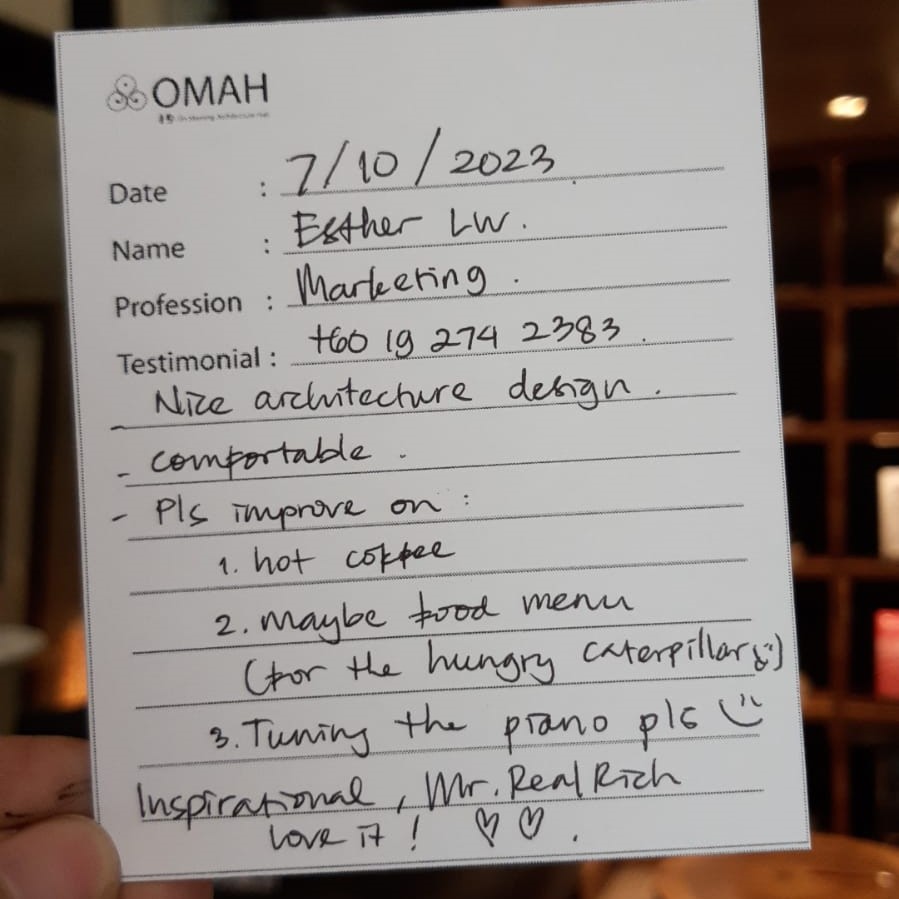 OMAH
Date : 7/10/2023
Name : Esther LW.
Profession : Marketing.
Testimonial : +60 19 274 2383.
- Nice architecture design.
- comfortable.
- Pls improve on :
1. hot coffee
2. Maybe food menu
(for the hungry caterpillars :)
3. Tuning the piano pls :)
Inspirational, Mr. Real Rich
Love it! ♡ ♡.